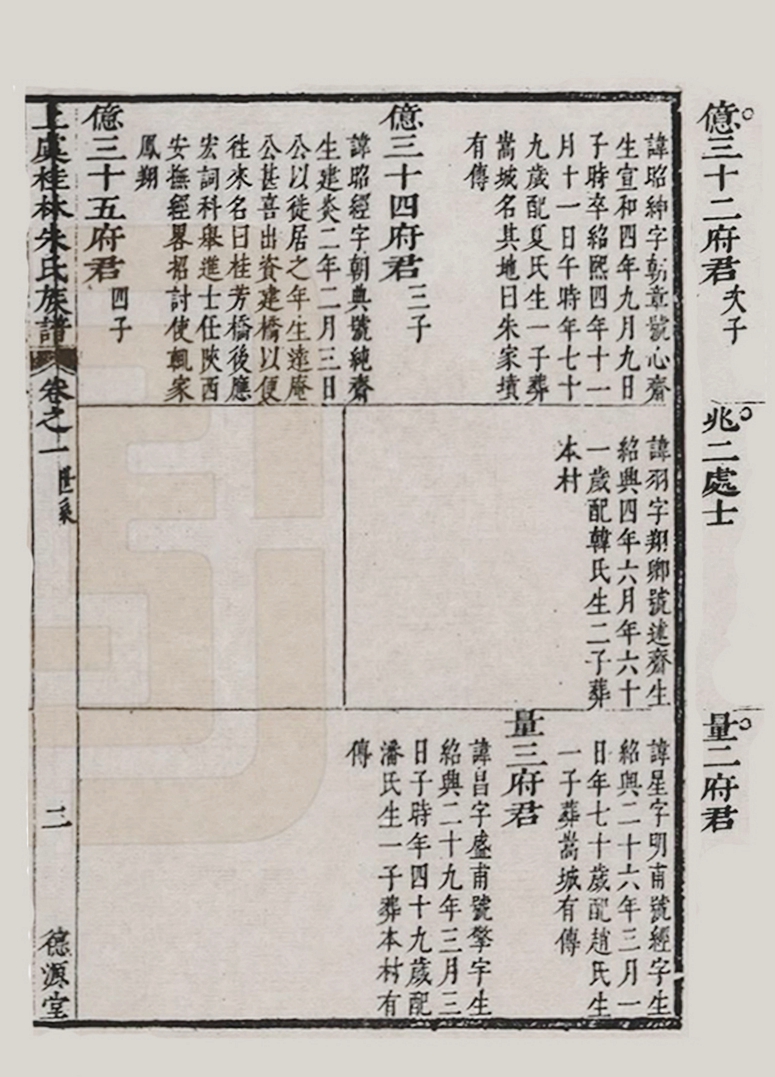 億三十二府君次子
諱昭紳字朝章號心齋
生宣和四年九月九日
子時卒紹熙四年十一
月十一日午時年七十
九歲配夏氏生一子葬
嵩城名其地曰朱家墳
有傳
億三十四府君三子
諱昭經字朝典號純齋
生建炎二年二月三日
公以徒居之年生遠庵
公甚喜出資建橋以便
往來名曰桂芳橋後應
宏詞科舉進士任陝西
安撫經畧招討使輒家
鳳翔
億三十五府君四子
兆二處士
諱羽字翔卿號達齋生
紹興四年六月年六十
一歲配韓氏生二子葬
本村
量二府君
諱星字明甫號經字生
紹興二十六年三月一
日年七十歲配趙氏生
一子葬嵩城有傳
量三府君
諱昌字盛甫號擎字生
紹興二十九年三月三
日子時年四十九歲配
潘氏生一子葬本村有
傳
上虞桂林朱氏族譜 卷之一 世系 三 德源堂